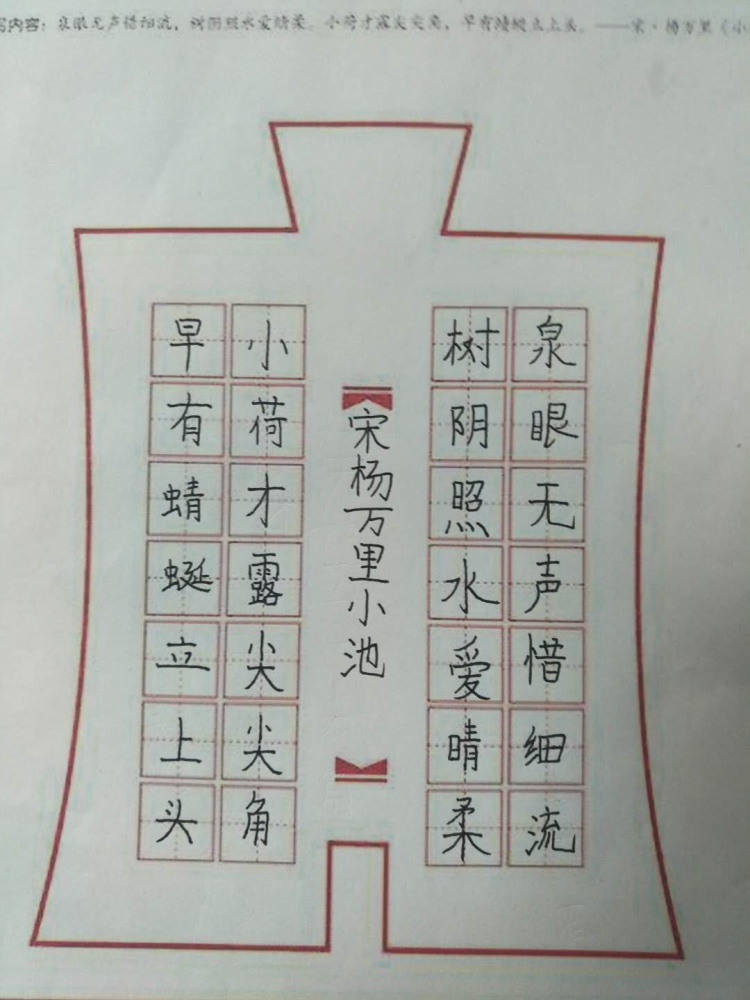 写内容：泉眼无声惜细流，树阴照水爱晴柔。小荷才露尖尖角，早有蜻蜓立上头。——宋·杨万里《小
泉眼无声惜细流
树阴照水爱晴柔
宋杨万里小池
小荷才露尖尖角
早有蜻蜓立上头